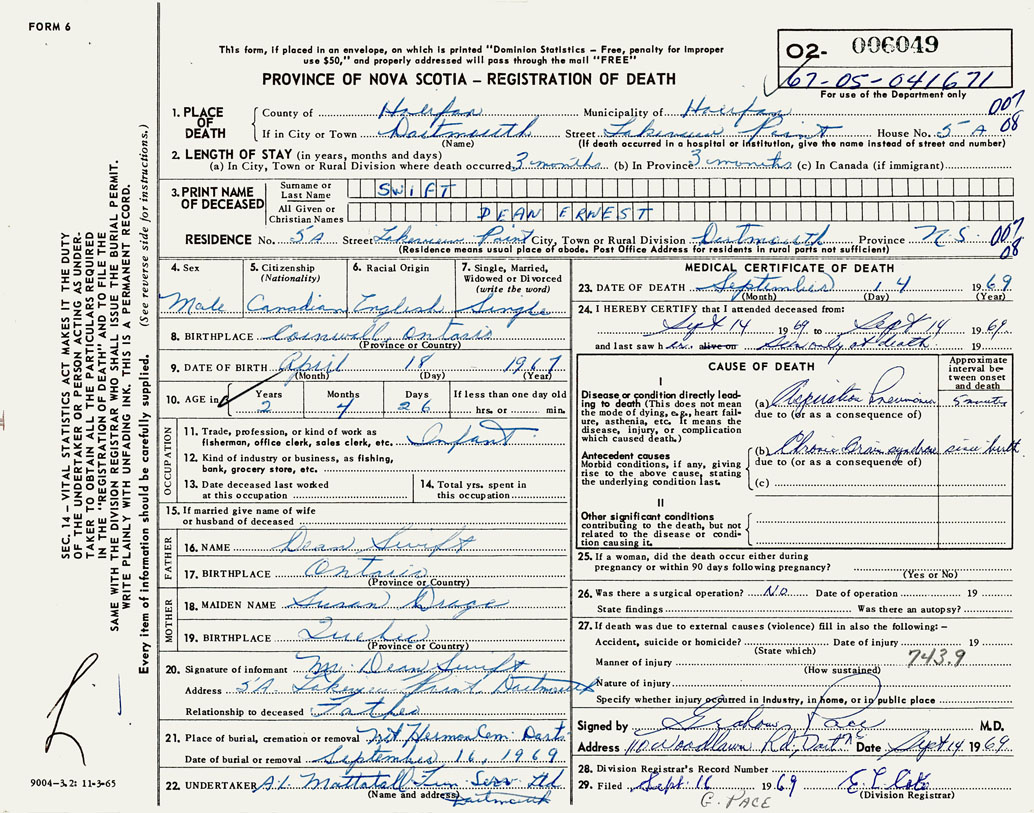 FORM 6
This form, if placed in an envelope, on which is printed "Dominion Statistics – Free, penalty for improper
use $50," and properly addressed will pass through the mail "FREE"
PROVINCE OF NOVA SCOTIA – REGISTRATION OF DEATH
02- 006049
67-05-041671
For use of the Department only
007
08
1. PLACE OF DEATH County of Halifax Municipality of Halifax
If in City or Town Dartmouth Street Lakeview Point House No. 5A
(Name) (If death occurred in a hospital or institution, give the name instead of street and number)
2. LENGTH OF STAY (in years, months and days)
(a) In City, Town or Rural Division where death occurred 3 months (b) In Province 3 months (c) In Canada (if immigrant)
3. PRINT NAME OF DECEASED
Surname or Last Name SWIFT
All Given or Christian Names DEAN ERNEST
RESIDENCE No. 5A Street Lakeview Point City, Town or Rural Division Dartmouth Province N.S.
007
08
(Residence means usual place of abode. Post Office Address for residents in rural parts not sufficient)
4. Sex Male
5. Citizenship (Nationality) Canadian
6. Racial Origin English
7. Single, Married, Widowed or Divorced (write the word) Single
8. BIRTHPLACE Cornwall, Ontario
(Province or Country)
9. DATE OF BIRTH April 18 1967
(Month) (Day) (Year)
10. AGE in Years 2 Months 4 Days 26 If less than one day old hrs. or min.
OCCUPATION
11. Trade, profession, or kind of work as
fisherman, office clerk, sales clerk, etc. Infant
12. Kind of industry or business, as fishing,
bank, grocery store, etc.
13. Date deceased last worked
at this occupation
14. Total yrs. spent in
this occupation
15. If married give name of wife
or husband of deceased
FATHER
16. NAME Dean Swift
17. BIRTHPLACE Ontario
(Province or Country)
MOTHER
18. MAIDEN NAME Susan
19. BIRTHPLACE Quebec
(Province or Country)
20. Signature of informant Mr. Dean Swift
Address 5A Lakeview Point, Dartmouth
Relationship to deceased Father
21. Place of burial, cremation or removal Mt Hermon Cem. Dart.
Date of burial or removal September 16, 1969
22. UNDERTAKER A.L. Mattatall Fun Serv Ltd
(Name and address) Dartmouth
MEDICAL CERTIFICATE OF DEATH
23. DATE OF DEATH September 14 1969
(Month) (Day) (Year)
24. I HEREBY CERTIFY that I attended deceased from:
Sept 14 1969 to Sept 14 1969
and last saw h alive on Seen only at death 19
CAUSE OF DEATH
Approximate interval between onset and death
I
Disease or condition directly leading to death (This does not mean
the mode of dying, e.g., heart failure, asthenia, etc. It means the
disease, injury, or complication
which caused death.)
(a) Aspiration Pneumonia 5 minutes
due to (or as a consequence of)
Antecedent causes
Morbid conditions, if any, giving
rise to the above cause, stating
the underlying condition last.
(b) Chronic Brain syndrome since birth
due to (or as a consequence of)
(c)
II
Other significant conditions
contributing to the death, but not
related to the disease or condition causing it.
25. If a woman, did the death occur either during
pregnancy or within 90 days following pregnancy?
(Yes or No)
26. Was there a surgical operation? NO Date of operation 19
State findings Was there an autopsy?
27. If death was due to external causes (violence) fill in also the following: –
Accident, suicide or homicide? Date of injury 19
(State which)
743.9
Manner of injury
(How sustained)
Nature of injury
Specify whether injury occurred in industry, in home, or in public place
Signed by Graham Pace M.D.
Address 110 Woodlawn Rd, Dart Date Sept 14 1969
28. Division Registrar's Record Number
29. Filed Sept. 16 1969
(Division Registrar)
G. PACE
SEC. 14 – VITAL STATISTICS ACT MAKES IT THE DUTY
OF THE UNDERTAKER OR PERSON ACTING AS UNDER-
TAKER TO OBTAIN ALL THE PARTICULARS REQUIRED
IN THE "REGISTRATION OF DEATH" AND TO FILE THE
SAME WITH THE DIVISION REGISTRAR WHO SHALL ISSUE THE BURIAL PERMIT.
WRITE PLAINLY WITH UNFADING INK. THIS IS A PERMANENT RECORD.
Every item of information should be carefully supplied. (See reverse side for instructions.)
9004–3.2: 11-3-65